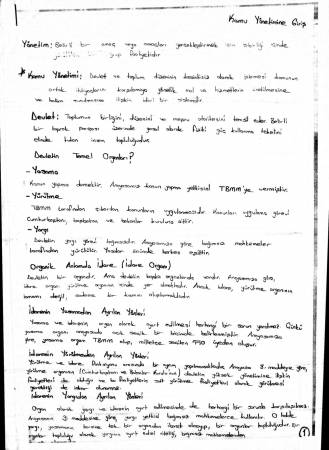 Kamu Yönetimine Giriş
Yönetim: Belirli bir amaç veya amaçları gerçekleştirmek için işbirliği içinde
yürütülen bir grup faaliyetidir
* Kamu Yönetimi; Devlet ve toplum düzeninin kesintisiz olarak işlemesi kamunun
ortak ihtiyaçlarını karşılamaya yönelik mal ve hizmetlerin üretilmesine
ve halka sunulmasına ilişkin idari bir sistemdir.
Devlet: Toplumun birliğini, düzenini ve meşru otoritesini temsil eder. Belirli
bir toprak parçası üzerinde yasal olarak fiziki güç kullanma tekelini
elinde tutan insan topluluğudur.
Devletin Temel Organları?
- Yasama
Kanun yapma demektir. Anayasamız kanun yapma yetkisini TBMM'ye vermiştir.
- Yürütme
TBMM tarafından çıkarılan kanunların uygulanmasıdır. Kanunları uygulama görevi
Cumhurbaşkanı, başbakana ve bakanlar kuruluna aittir.
- Yargı
Devletin yargı görevi bağımsızdır. Anayasamıza göre, bağımsız mahkemeler
tarafından yürütülür. Yasalar önünde herkes eşittir.
Organik Anlamda İdare (İdare Organı)
Devletin bir organıdır. Ama devletin başka organlarıda vardır. Anayasamıza göre,
idare organı yürütme organının içinde yer almaktadır. Ancak idare, yürütme organının
tamamı değil, sadece bir kısmını oluşturmaktadır.
İdarenin Yasamadan Ayrılan Yönleri
Yasama ve idarenin organ olarak ayırt edilmesi herhangi bir sorun yaratmaz. Çünkü
yasama organı anayasada açık seçik bir biçimde belirlenmiştir. Anayasamıza
göre, yasama organı TBMM olup, milletçe seçilen 550 üyeden oluşur.
İdarenin Yürütmeden Ayrılan Yönleri
Yürütme ve idare fonksiyonu arasında bir ayrım yapılmamaktadır. Anayasa 8. maddeye göre,
yürütme organının (Cumhurbaşkanı ve Bakanlar Kurulu'nun) devletin yüksek yönetimine ilişkin
faaliyetleri de olduğu ve bu faaliyetlerin salt yürütme faaliyetleri olarak görülmesi
gerektiği de idare dışındadır.
İdarenin Yargıdan Ayrılan Yönleri
Organ olarak yargı ve idarenin ayırt edilmesinde de herhangi bir sorunla karşılaşılmaz.
Anayasanın 9. maddesine göre, yargı yetkisi bağımsız mahkemelerce kullanılır. O halde
yargı, yasamanın tersine tek bir organdan ibaret olmayıp, bir organlar topluluğudur. Bu
organlar topluluğu olarak yargının ayırt edici özelliği, bağımsız mahkemelerden
olmasıdır.
1